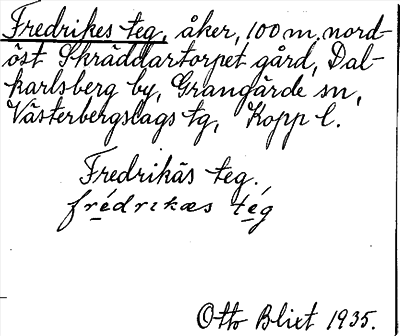 Fredrikes teg, åker, 100 m. nord-
öst Skräddartorpet gård, Dal-
karlsberg by, Grangärde sn,
Västerbergslags tg, Kopp l.
Fredrikäs teg.
frédrikæs tég
Otto Blixt 1935.